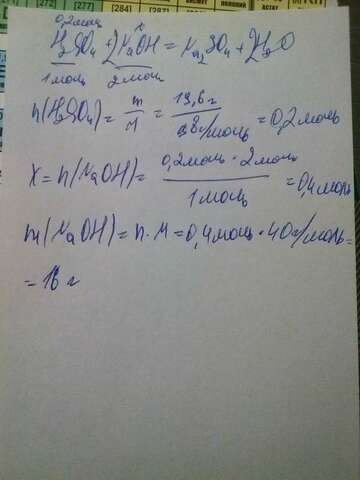 [284) (287) (291) (294)
[272] (277) [284]
0,2моль x
H₂SO₄+2NaOH=Na₂SO₄+2H₂O
1моль 2моль
n(H₂SO₄)=m/M=19,6г/98г/моль=0,2моль
x=n(NaOH)=0,2моль·2моль/1моль=0,4моль
m(NaOH)=n·M=0,4моль·40г/моль=
=16 г